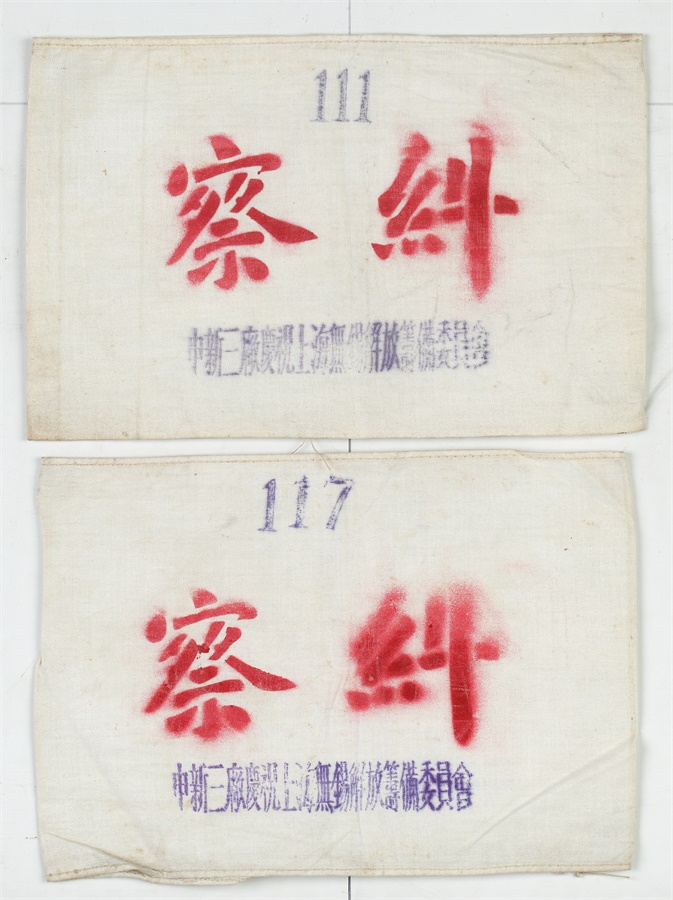 111
糾察
申新三廠慶祝上海無錫解放籌備委員會
117
糾察
申新三廠慶祝上海無錫解放籌備委員會